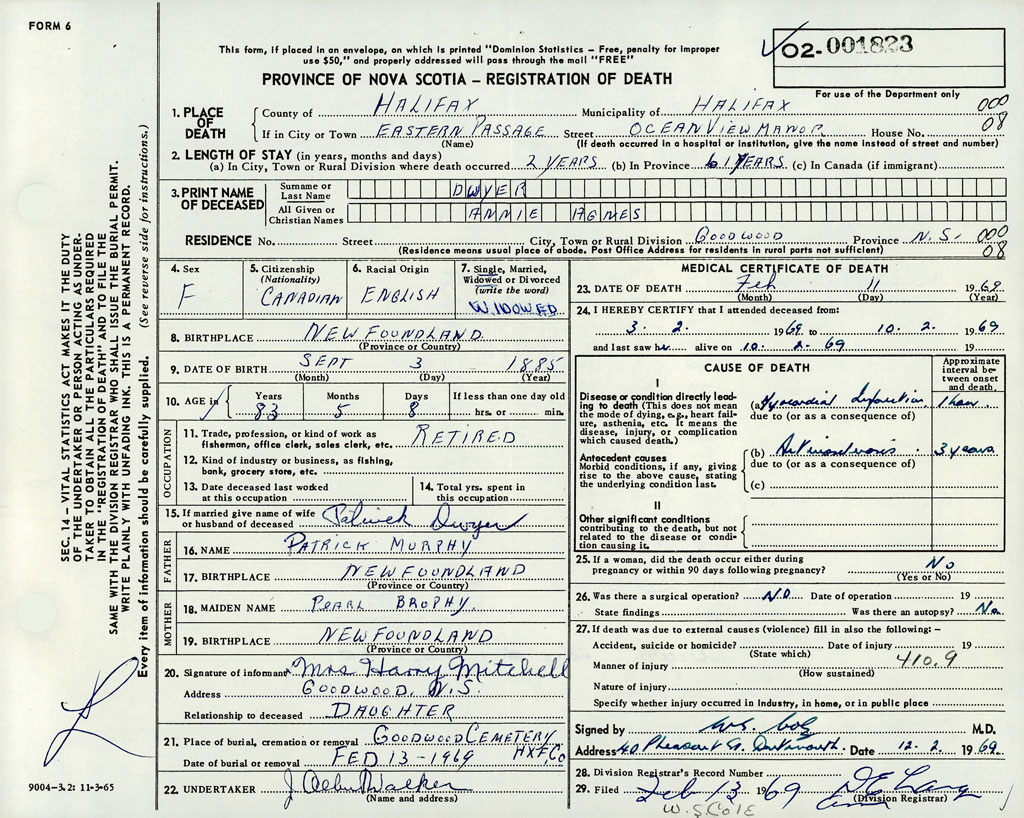 FORM 6
This form, if placed in an envelope, on which is printed "Dominion Statistics – Free, penalty for improper
use $50," and properly addressed will pass through the mail "FREE"
PROVINCE OF NOVA SCOTIA – REGISTRATION OF DEATH
02-001823
For use of the Department only
SEC. 14 – VITAL STATISTICS ACT MAKES IT THE DUTY
OF THE UNDERTAKER OR PERSON ACTING AS UNDER-
TAKER TO OBTAIN ALL THE PARTICULARS REQUIRED
IN THE "REGISTRATION OF DEATH" AND TO FILE THE
SAME WITH THE DIVISION REGISTRAR WHO SHALL ISSUE THE BURIAL PERMIT.
WRITE PLAINLY WITH UNFADING INK. THIS IS A PERMANENT RECORD.
Every item of information should be carefully supplied. (See reverse side for instructions.)
1. PLACE OF DEATH
County of HALIFAX Municipality of HALIFAX 000
If in City or Town EASTERN PASSAGE Street OCEAN VIEW MANOR House No. 08
(Name) (If death occurred in a hospital or institution, give the name instead of street and number)
2. LENGTH OF STAY (in years, months and days)
(a) In City, Town or Rural Division where death occurred 2 YEARS (b) In Province 61 YEARS (c) In Canada (if immigrant)
3. PRINT NAME OF DECEASED
Surname or Last Name DWYER
All Given or Christian Names ANNIE AGNES
RESIDENCE No. Street City, Town or Rural Division GOODWOOD Province N.S. 000
(Residence means usual place of abode. Post Office Address for residents in rural parts not sufficient) 08
4. Sex F
5. Citizenship (Nationality) CANADIAN
6. Racial Origin ENGLISH
7. Single, Married, Widowed or Divorced (write the word) WIDOWED
8. BIRTHPLACE NEW FOUNDLAND
(Province or Country)
9. DATE OF BIRTH SEPT 3 1885
(Month) (Day) (Year)
10. AGE in Years Months Days If less than one day old
83 5 8 hrs. or min.
OCCUPATION
11. Trade, profession, or kind of work as fisherman, office clerk, sales clerk, etc. RETIRED
12. Kind of industry or business, as fishing, bank, grocery store, etc.
13. Date deceased last worked at this occupation
14. Total yrs. spent in this occupation
15. If married give name of wife or husband of deceased Patrick Dwyer
FATHER
16. NAME PATRICK MURPHY
17. BIRTHPLACE NEWFOUNDLAND
(Province or Country)
MOTHER
18. MAIDEN NAME PEARL BROPHY.
19. BIRTHPLACE NEWFOUNDLAND
(Province or Country)
20. Signature of informant Mrs Harry Mitchell
Address GOODWOOD, N.S.
Relationship to deceased DAUGHTER
21. Place of burial, cremation or removal GOODWOOD CEMETERY
HXF, Co
Date of burial or removal FEB 13 - 1969
22. UNDERTAKER J Albert Walker
(Name and address)
9004-3.2: 11-3-65
MEDICAL CERTIFICATE OF DEATH
23. DATE OF DEATH Feb 11 1969
(Month) (Day) (Year)
24. I HEREBY CERTIFY that I attended deceased from:
3. 2. 1969 to 10. 2. 1969
and last saw her alive on 10. 2. 69 19
CAUSE OF DEATH
Approximate interval between onset and death
I
Disease or condition directly leading to death (This does not mean the mode of dying, e.g., heart failure, asthenia, etc. It means the disease, injury, or complication which caused death.)
(a) Myocardial Infarction 1 hour
due to (or as a consequence of)
Antecedent causes
Morbid conditions, if any, giving rise to the above cause, stating the underlying condition last.
(b) 3 years
due to (or as a consequence of)
(c)
II
Other significant conditions
contributing to the death, but not related to the disease or condition causing it.
25. If a woman, did the death occur either during pregnancy or within 90 days following pregnancy? No
(Yes or No)
26. Was there a surgical operation? NO Date of operation 19
State findings Was there an autopsy? No
27. If death was due to external causes (violence) fill in also the following: –
Accident, suicide or homicide? Date of injury 19
(State which) 410.9
Manner of injury
(How sustained)
Nature of injury
Specify whether injury occurred in industry, in home, or in public place
Signed by M.D.
Address 40 Pheasant St. Dartmouth. Date 12. 2 1969
28. Division Registrar's Record Number
29. Filed Feb 13 1969
(Division Registrar)
W. S. Cole